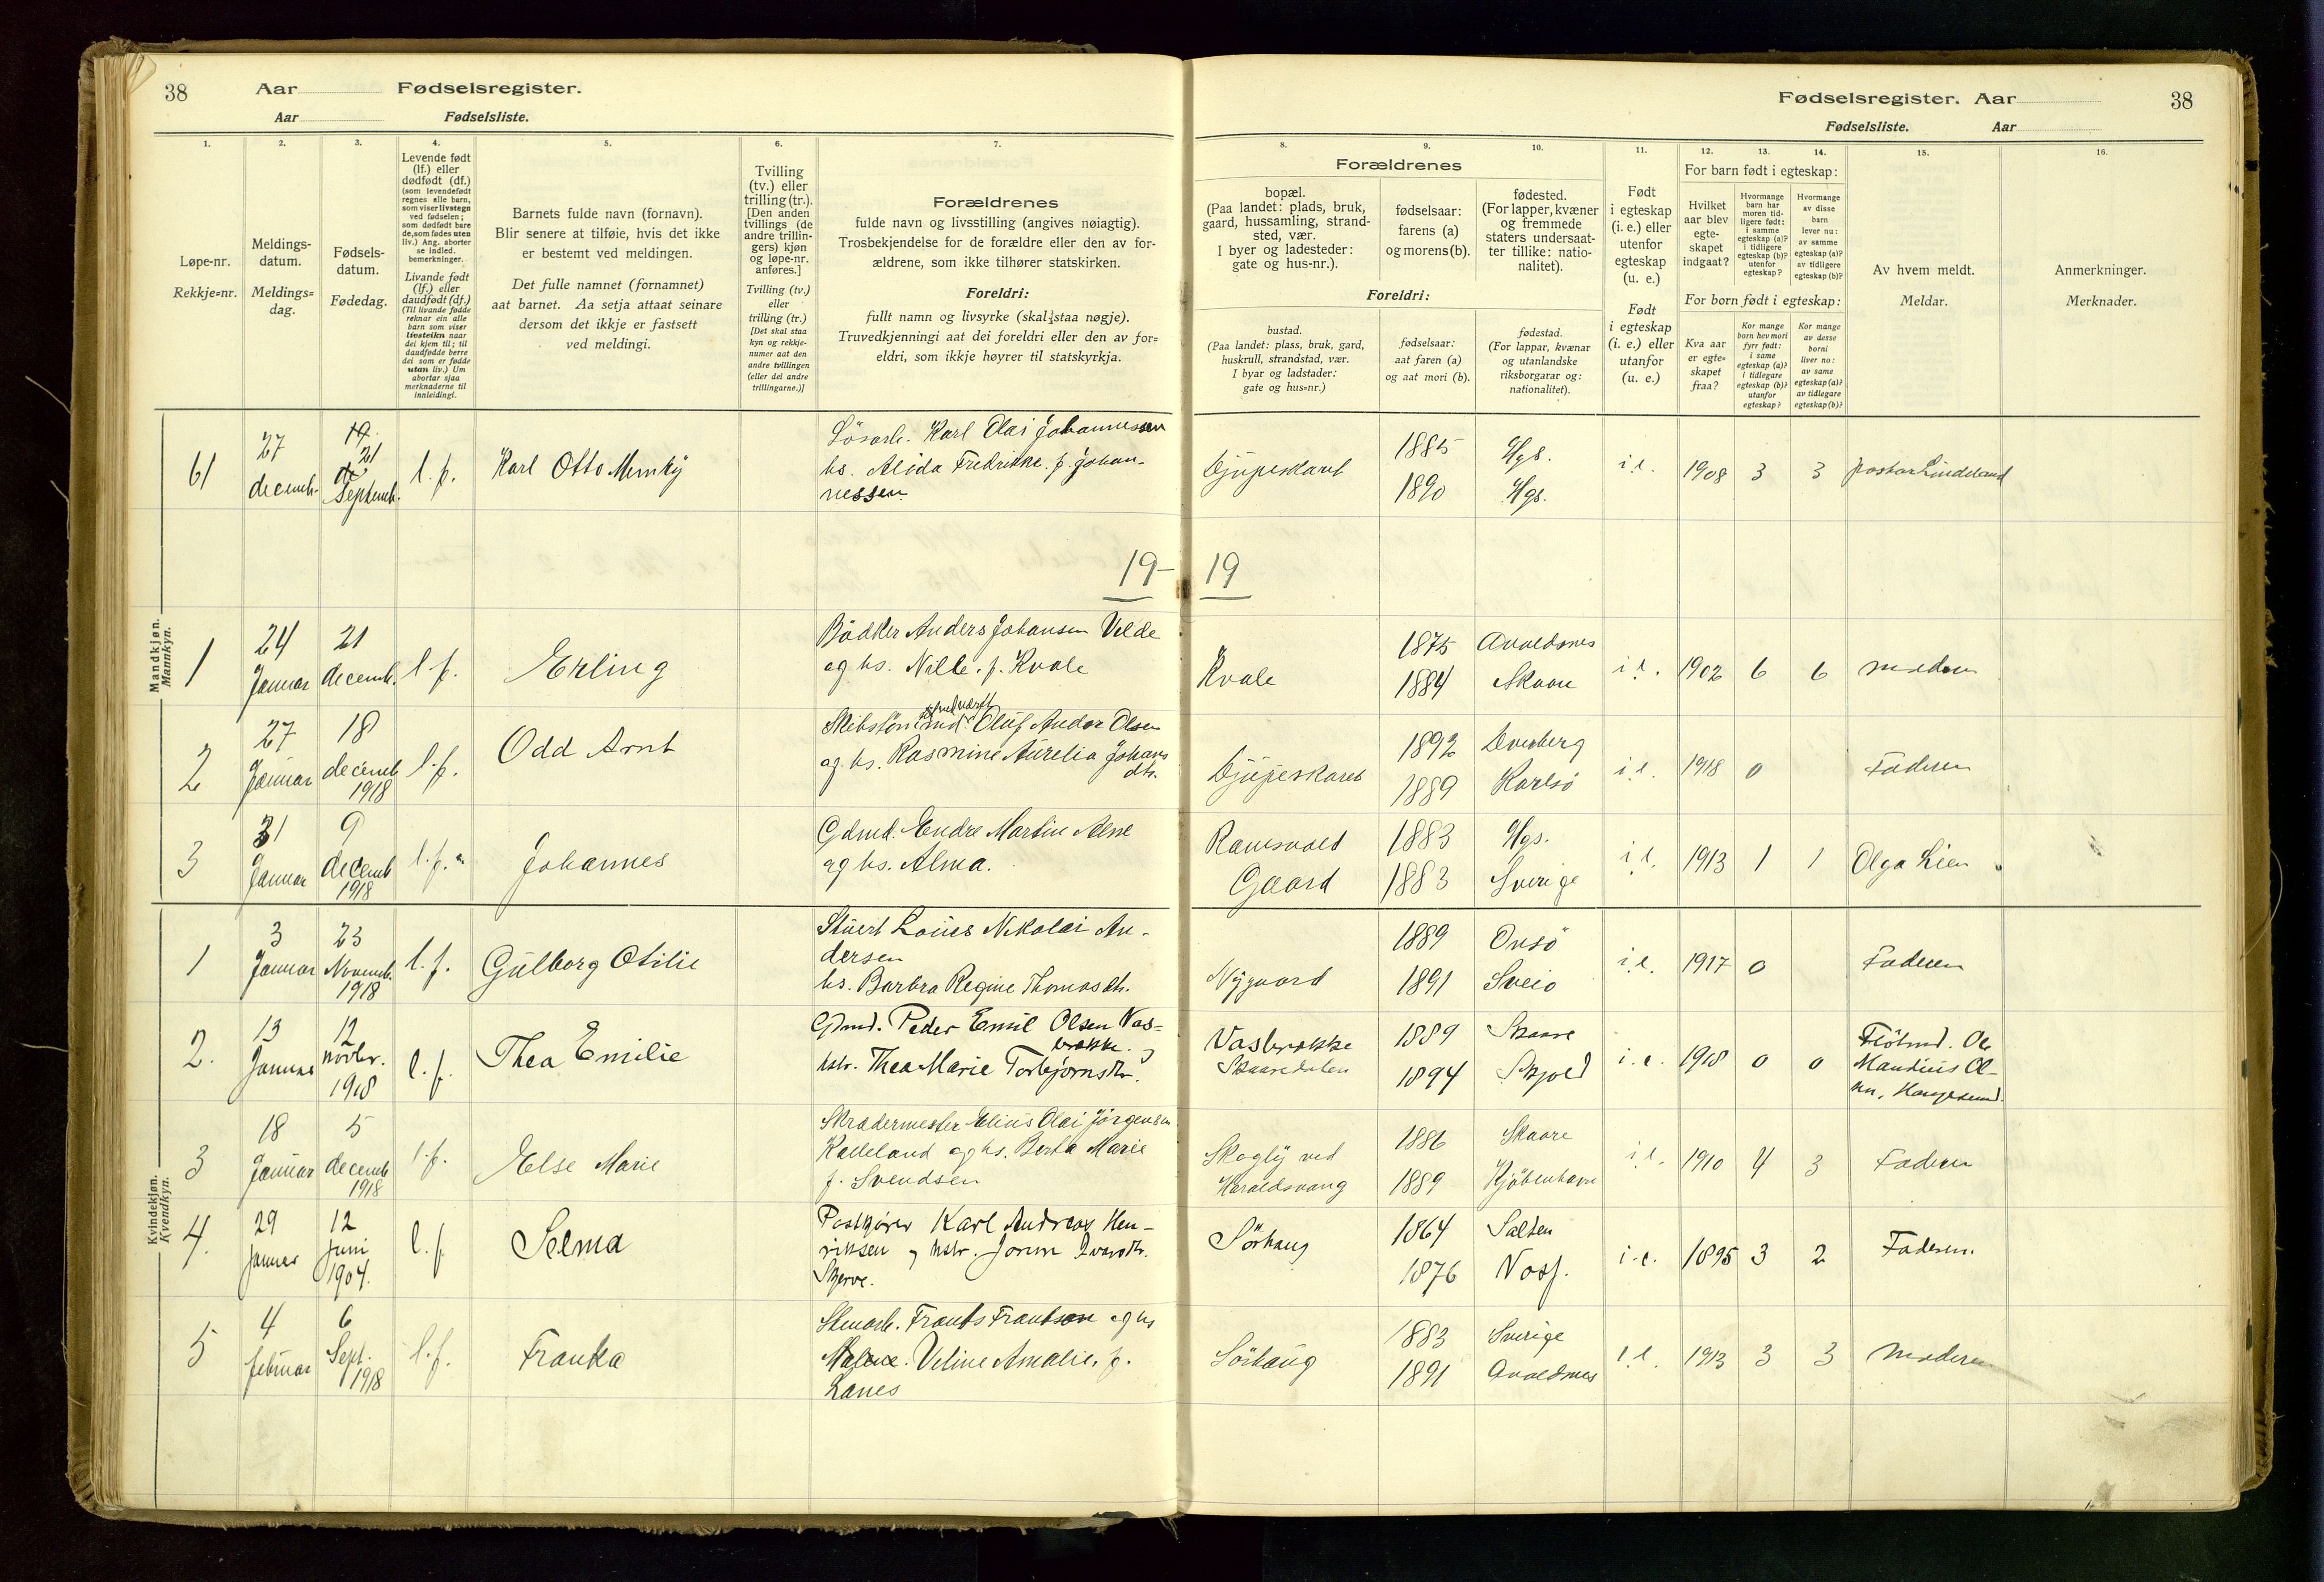 38
Aar
Fødselsregister.
Aar
Fødselsliste.
Fødselsregister. Aar
38
Fødselsliste.
Aar
1.
Løpe-nr.
Rekkje=nr.
2.
Meldings-
datum.
Meldings=
dag.
3.
Fødsels-
datum.
Fødedag.
4.
Levende født
(lf.) eller
dødfødt (df.)
(som levendefødt
regnes alle barn,
som viser livstegn
ved fødselen;
som dødfødt bare
de, som fødes uten
liv.) Ang. aborter
se indled.
bemerkninger.
Livande født
(lf.) eller
daudfødt (df.)
(Til livande fødde
reknar ein alle
barn som viser
livsteikn naar
dei kjem til; til
daudfødde berre
dei som er fødde
utan liv.) Um
abortar sjaa
merknaderne til
innleidingi.
5.
Barnets fulde navn (fornavn).
Blir senere at tilføie, hvis det ikke
er bestemt ved meldingen.
Det fulle namnet (fornamnet)
aat barnet. Aa setja attaat seinare
dersom det ikkje er fastsett
ved meldingi.
6.
Tvilling
(tv.) eller
trilling (tr.).
[Den anden
tvillings (de
andre trillin-
gers) kjøn
og løpe-nr.
anføres.]
Tvilling (tv.)
eller
trilling (tr.)
[Det skal staa
kyn og rekkje-
numer aat den
andre tvillingen
(eller dei andre
trillingarne.)]
7.
Forældrenes
fulde navn og livsstilling (angives nøiagtig).
Trosbekjendelse for de forældre eller den av for-
ældrene, som ikke tilhører statskirken.
Foreldri:
fullt namn og livsyrke (skal staa nøgje).
Truvedkjenningi aat dei foreldri eller den av for=
eldri, som ikkje høyrer til statskyrkja.
8.
Forældrenes
bopæl.
(Paa landet: plads, bruk,
gaard, hussamling, strand-
sted, vær.
I byer og ladesteder:
gate og hus-nr.).
Foreldri:
bustad.
(Paa landet: plass, bruk, gard,
huskrull, strandstad, vær.
I byar og ladstader:
gate og hus=nr.)
9.
fødselsaar:
farens (a)
og morens (b).
fødselsaar:
aat faren (a)
og aat mori (b).
10.
fødested.
(For lapper, kvæner
og fremmede
staters undersaat-
ter tillike: natio-
nalitet).
fødestad.
(For lappar, kvænar
og utanlandske
riksborgarar og:
nationalitet).
11.
Født
i egteskap
(i. e.) eller
utenfor
egteskap
(u. e.)
Født
i egteskap
(i. e.) eller
utanfor
(u. e.)
12.
13.
14.
For barn født i egteskap:
Hvilket
aar blev
egte-
skapet
indgaat?
Hvormange
barn har
moren tid-
ligere født:
i samme
egteskap (a)?
i tidligere
egteskap (b)?
utenfor
egteskap?
Hvormange
av disse
barn
lever nu:
av samme
egteskap (a)?
av tidligere
egteskap (b)?
For born født i egteskap:
Kva aar
er egte=
skapet
fraa?
Kor mange
born hev mori
fyrr født:
i same
egteskap (a)?
i tidlegare
egteskap (b)?
utanfor
egteskap?
Kor mange
av desse
borni
liver no:
av same
egteskap (a)?
av tidlegare
egteskap (b)?
15.
Av hvem meldt.
Meldar.
16.
Anmerkninger.
Merknader.
61
27
decemb.
19
21
Septemb.
l. f.
Karl Otto
Lösarb. Karl Olai Johannessen
hs. Alida Fredrikke. f. Johan-
nessen.
Djupeskaret
1885
1890
Hgs.
Hgs.
i. e.
1908
3
3
pastor Lindeland
19-
19
Mandkjøn.
Mannkyn.
1
24
Januar
21
decemb.
l. f.
Erling
Bödker Anders Johansen Velde
og hs. Nille. f. Kvale
Kvale
1875
1884
Avaldsnes
Skaare
i. e.
1902
6
6
moderen
2
27
Januar
18
decemb
1918
l. f.
Odd Arnt
Oluf Andor Olsen
og hs. Rasmine Aurelia Johans
dtr.
Djupeskaret
1892
1889
Dverberg
Karlsö
i. e.
1918
0
Faderen
3
31
Januar
9
decemb
1918
l. f.
Johannes
Gdmd. Endre Martin Alne
og hs. Alma.
Ramsvold
Gaard
1883
1883
Hgs.
Sverige
i. e.
1913
1
1
Olga Lien
Kvindekjøn.
Kvendkyn.
1
3
Januar
23
Novemb.
1918
l. f.
Gulborg Otilie
Stuert Louis Nikolai An-
dersen
hs. Barbra Regine Thomasdtr.
Nygaard
1889
1891
Onsö
Sveio
i. e.
1917
0
Faderen
2.
13
Januar
12
novbr.
1918
l. f.
Thea Emilie
Gdmd. Peder Emil Olsen Vas-
brække. og
hstr. Thea Marie Torbjørnsdtr.
Vasbrække
Skaaredalen
1889
1894
Skaare
Skjold
i. e.
1918
0
0
Flötmd. Ole
Mandius Ol-
sen, Haugesund.
3
18
Januar
5
decemb
1918
l. f.
Else Marie
Skradermester Elius Olai Jörgensen
Kalleland og hs. Berta Marie
f. Svendsen
Skogly ved
Haraldsvang
1886
1889
Skaare
Kjöbenhavn
i. e.
1910
4
3
Faderen
4.
29
januar
12
juni
1904.
l. f.
Selma
Postkjører Karl Andreas Hen-
riksen og hstr. Jorun Ivarsdtr.
Skjerve.
Sörhaug
1864
1876
Salten
Voss.
i. e.
1895
3
2
Faderen.
5
4
februar
6
Sept.
1918
l. f.
Franka
Stenarb. Frants Frantsen og hs
Malene. Veline Amalie. f.
Lanes
Sörhaug
1883
1891
Sverige
Avaldsnes
i. e.
1913
3
3
Moderen